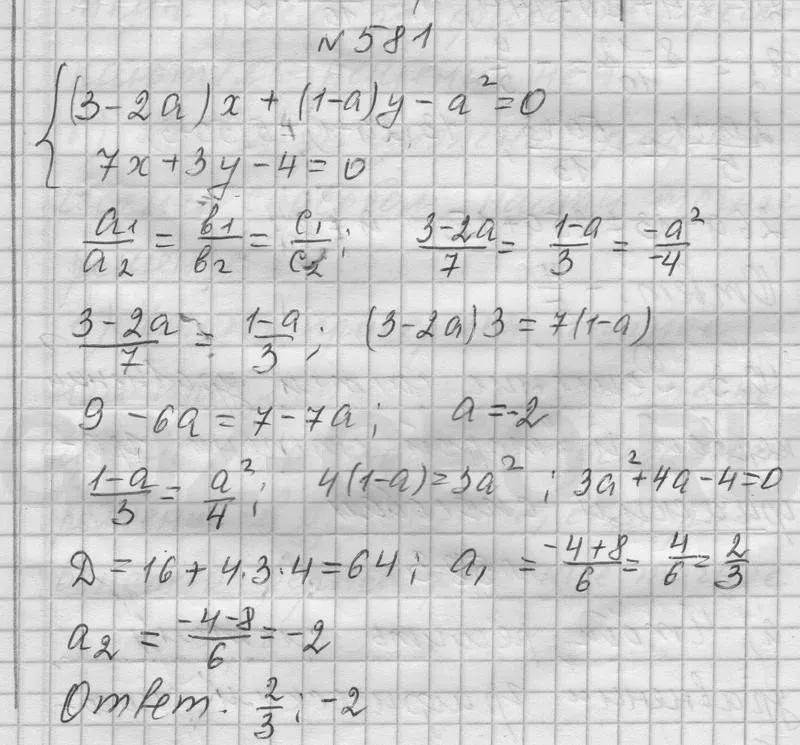 N 581
(3-2a)x + (1-a)y - a² = 0
7x + 3y - 4 = 0
a₁/a₂ = в₁/в₂ = c₁/c₂; (3-2a)/7 = (1-a)/3 = -a²/-4
(3-2a)/7 = (1-a)/3; (3-2a)3 = 7(1-a)
9 - 6a = 7 - 7a; a = -2
(1-a)/3 = a²/4; 4(1-a) = 3a²; 3a² + 4a - 4 = 0
D = 16 + 4·3·4 = 64; a₁ = (-4+8)/6 = 4/6 = 2/3
a₂ = (-4-8)/6 = -2
Ответ. 2/3; -2